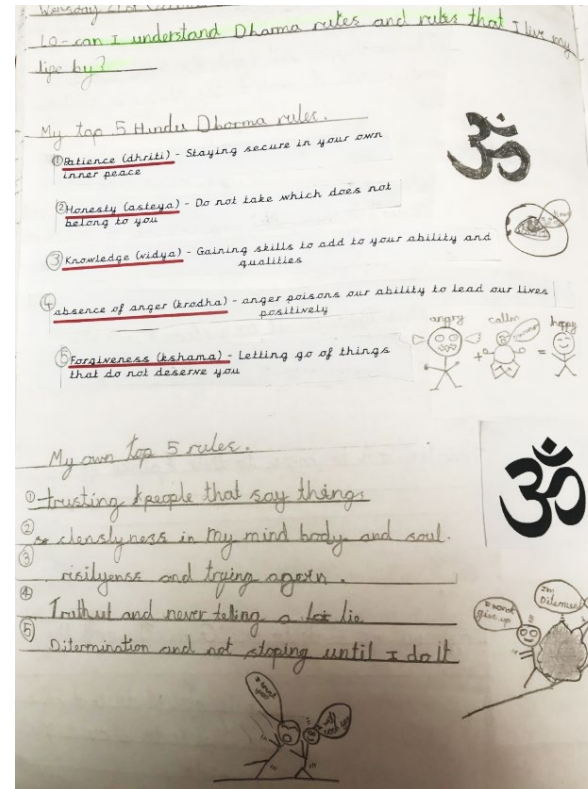 LO - can I understand Dharma rules and rules that I live my
life by?
My top 5 Hindu Dharma rules.
① Patience (dhriti) - Staying secure in your own
inner peace
② Honesty (asteya) - Do not take which does not
belong to you
③ Knowledge (vidya) - Gaining skills to add to your ability and
qualities
④ absence of anger (krodha) - anger poisons our ability to lead our lives
positively
angry calm happy
+ =
⑤ Forgiveness (kshama) - Letting go of things
that do not deserve you
ॐ
ॐ
My own top 5 rules.
① trusting people that say things
② clenslyness in my mind body and soul.
③ risilyenss and trying again.
④ Truthut and never telling a lie
⑤ Ditermination and not stoping until I do it
I wont
give up
I'm
I trust
you